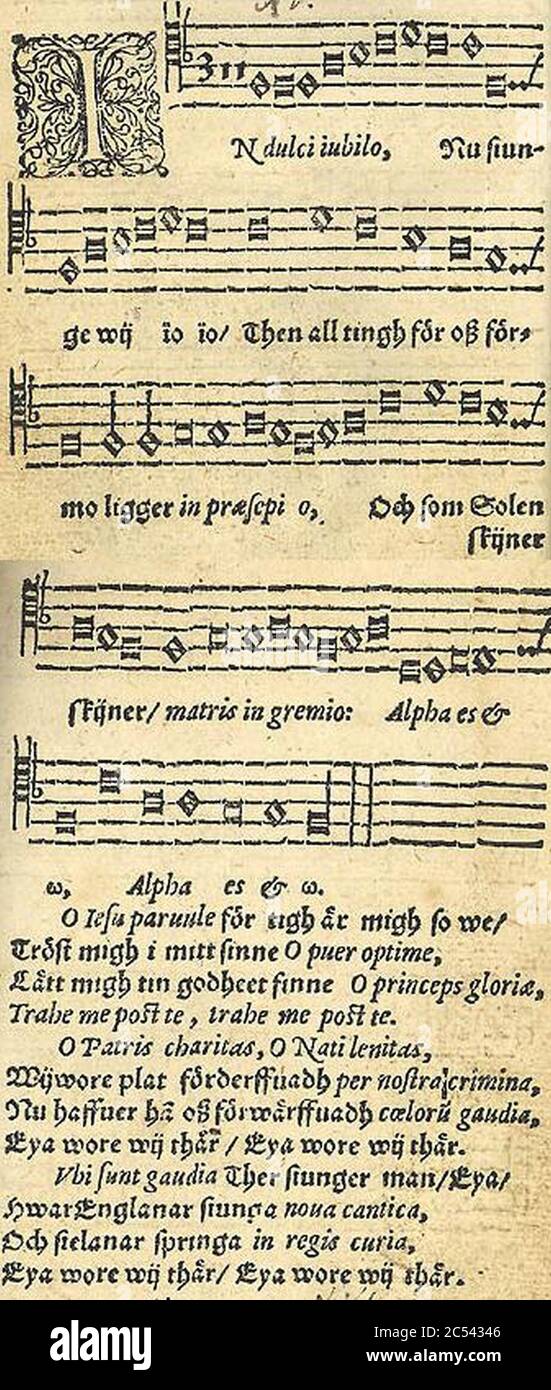 IN dulci iubilo, Nu siun-
ge wij io io/ Then all tingh för oß för-
mo ligger in præsepi o, Och som Solen
skijner
skijner/ matris in gremio: Alpha es &
ω, Alpha es & ω.
O Iesu paruule för tigh är migh so we/
Tröst migh i mitt sinne O puer optime,
Lått migh tin godheet finne O princeps gloriæ,
Trahe me post te, trahe me post te.
O Patris charitas, O Nati lenitas,
Wij wore plat förderffuadh per nostra crimina,
Nu haffuer hã oß förwärffuadh cœlorũ gaudia,
Eya wore wij thår/ Eya wore wij thår.
Vbi sunt gaudia Ther siunger man/Eya/
Hwar Englanar siunga noua cantica,
Och sielanar springa in regis curia,
Eya wore wij thår/ Eya wore wij thår.
alamy
Image ID: 2C54346
www.alamy.com